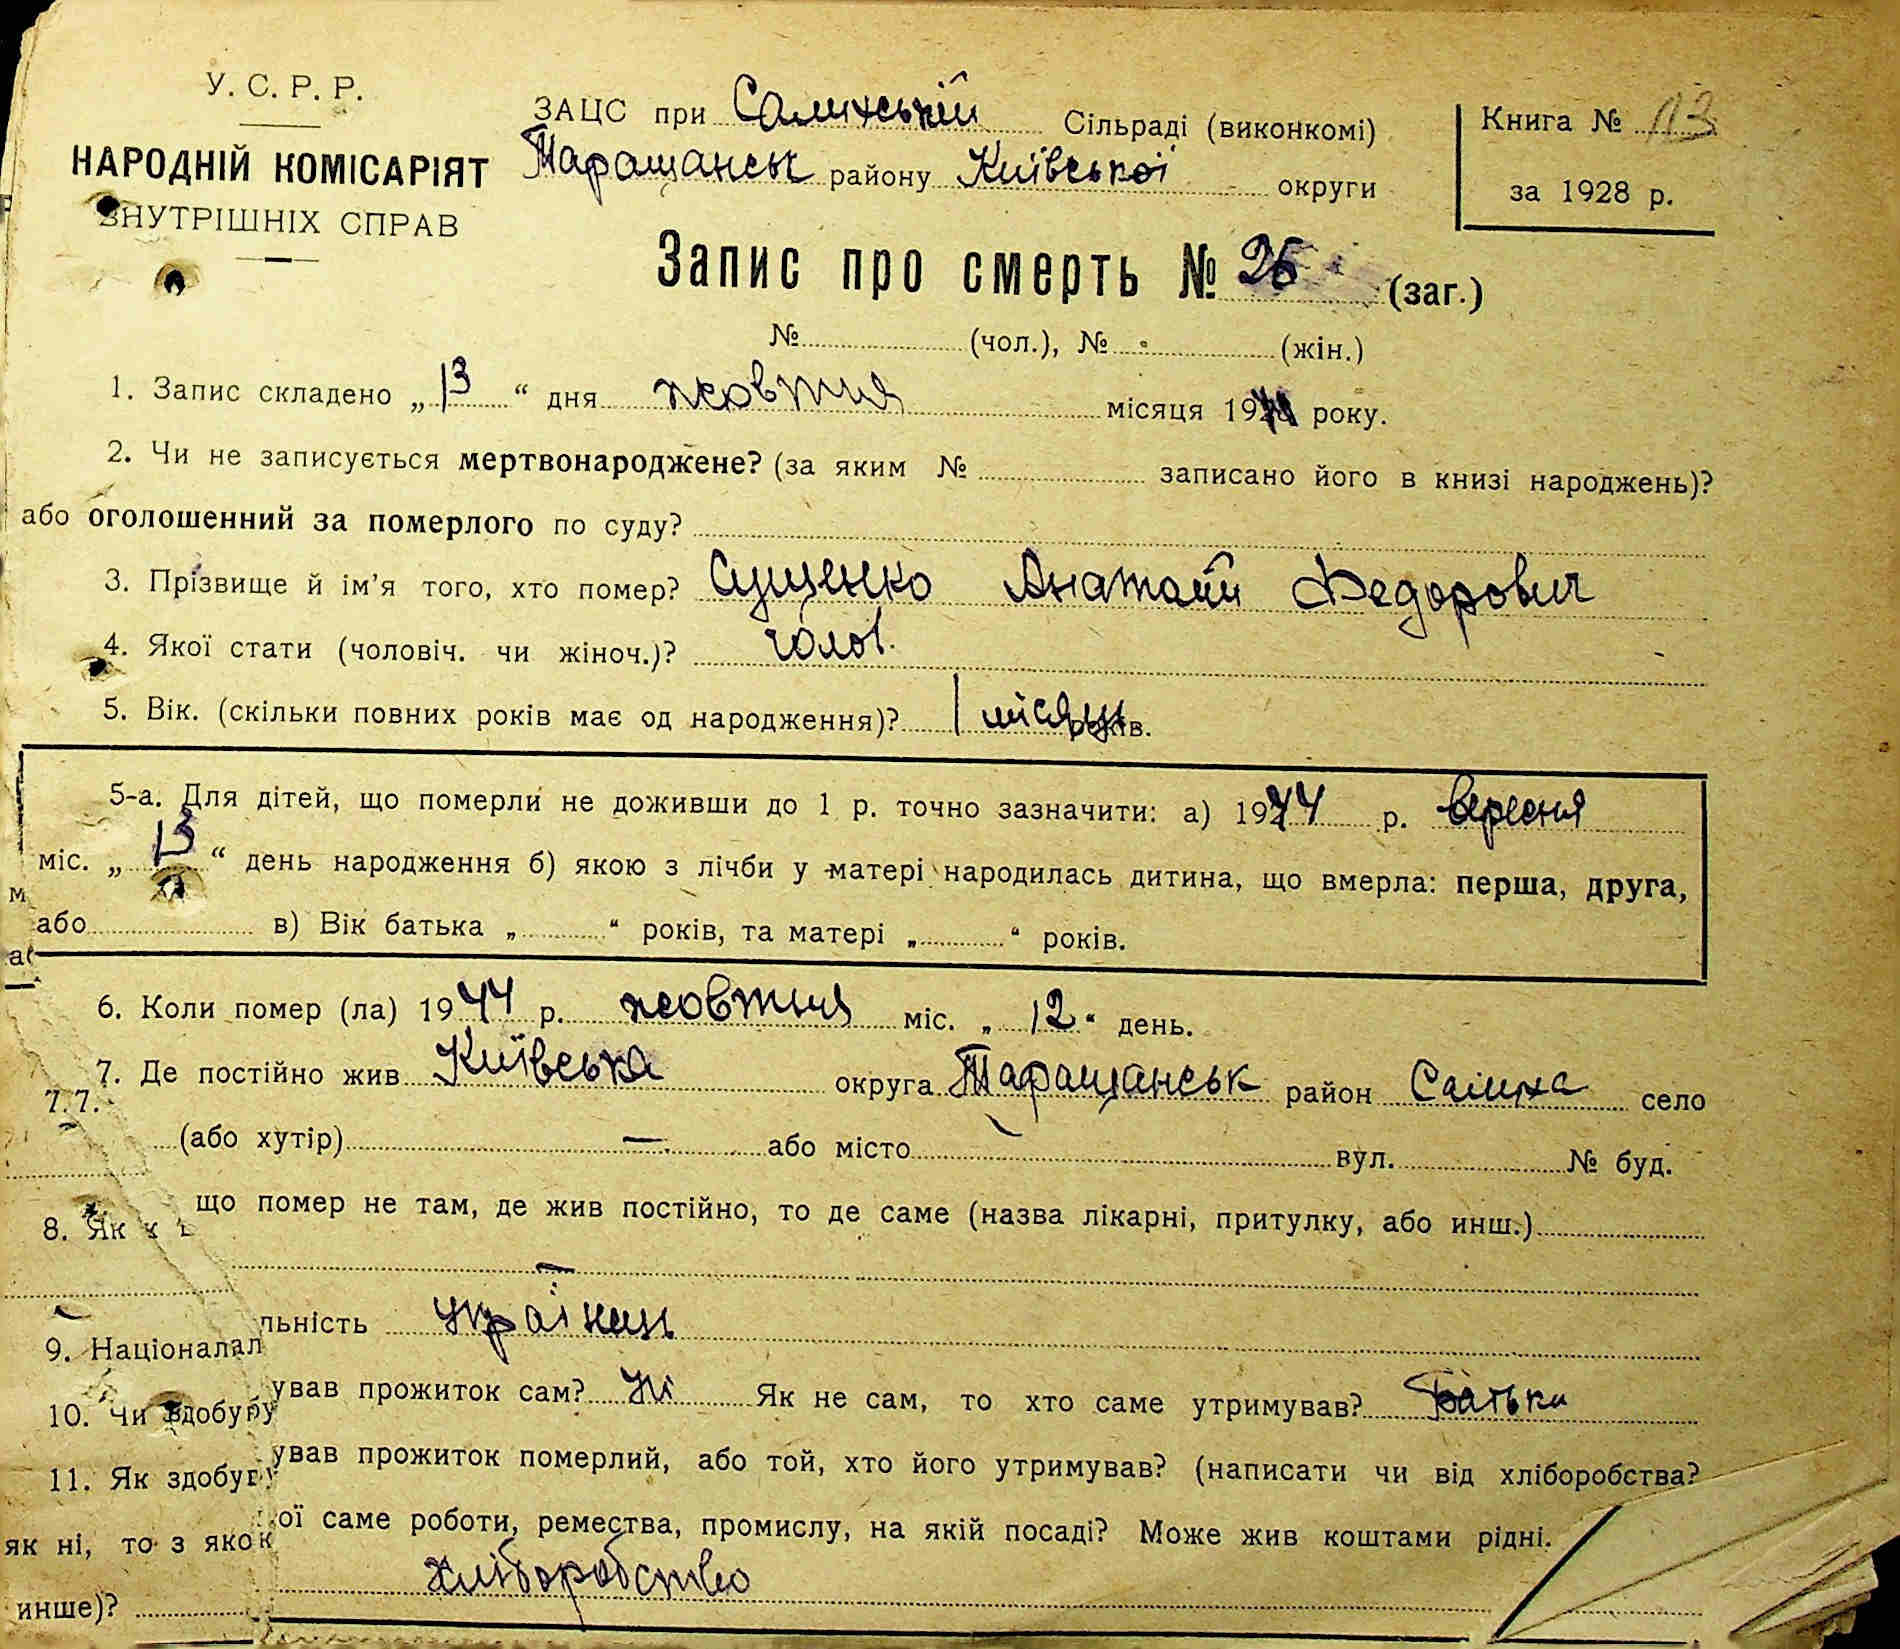 У. С. Р. Р.
НАРОДНІЙ КОМІСАРІЯТ
ВНУТРІШНІХ СПРАВ
ЗАЦС при Салиській Сільраді (виконкомі)
Таращанськ району Київської округи
Книга № 113
за 1928 р.
Запис про смерть № 26 (заг.)
№ (чол.), № (жін.)
1. Запис складено „13“ дня жовтня місяця 1944 року.
2. Чи не записується мертвонароджене? (за яким № записано його в книзі народжень)?
або оголошенний за померлого по суду?
3. Прізвище й ім’я того, хто помер? Сущенко Анатолій Федорович
4. Якої стати (чоловіч. чи жіноч.)? чолов.
5. Вік. (скільки повних років має од народження)? 1 місяць років.
5-а. Для дітей, що померли не доживши до 1 р. точно зазначити: а) 1944 р. вересня
міс. „13“ день народження б) якою з лічби у матері народилась дитина, що вмерла: перша, друга,
або в) Вік батька „ “ років, та матері „ “ років.
6. Коли помер (ла) 1944 р. жовтня міс. „12“ день.
7. Де постійно жив Київська округа Таращанськ район село
7.
(або хутір) — або місто вул. № буд.
8. Як що помер не там, де жив постійно, то де саме (назва лікарні, притулку, або инш.)
—
9. Національність українець
10. Чи здобував прожиток сам? Ні Як не сам, то хто саме утримував? Батьки
11. Як здобував прожиток померлий, або той, хто його утримував? (написати чи від хліборобства?
як ні, то з якої саме роботи, ремества, промислу, на якій посаді? Може жив коштами рідні.
инше)? хліборобство